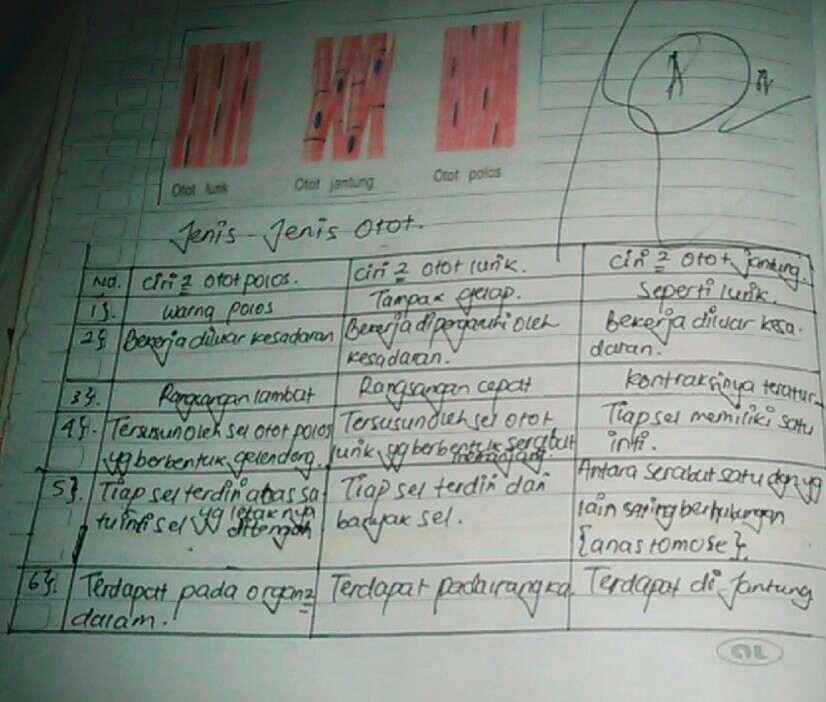 Otot lurik
Otot jantung
Otot polos
A
Jenis - Jenis Otot.
No. Ciri 2 otot polos. Ciri 2 otot lurik. Ciri 2 otot jantung.
1}. Warna polos Tampak gelap. Seperti lurik.
2}. Bekerja diluar kesadaran Bekerja dipengaruhi oleh Bekerja diluar kesa-
kesadaran. daran.
3}. Rangsangan lambat Rangsangan cepat Kontraksinya teratur
4}. Tersusun oleh sel otot polos Tersusun oleh sel otot Tiap sel memiliki satu
yg berbentuk gelendong. lurik yg berbentuk serabut inti.
memanjang.
5}. Tiap sel terdiri atas sa- Tiap sel terdiri dari Antara serabut satu dgn yg
tu inti sel yg letaknya banyak sel. lain saling berhubungan
ditengah {anastomose}.
6}. Terdapat pada organ2 Terdapat pada rangka. Terdapat di Jantung
dalam.